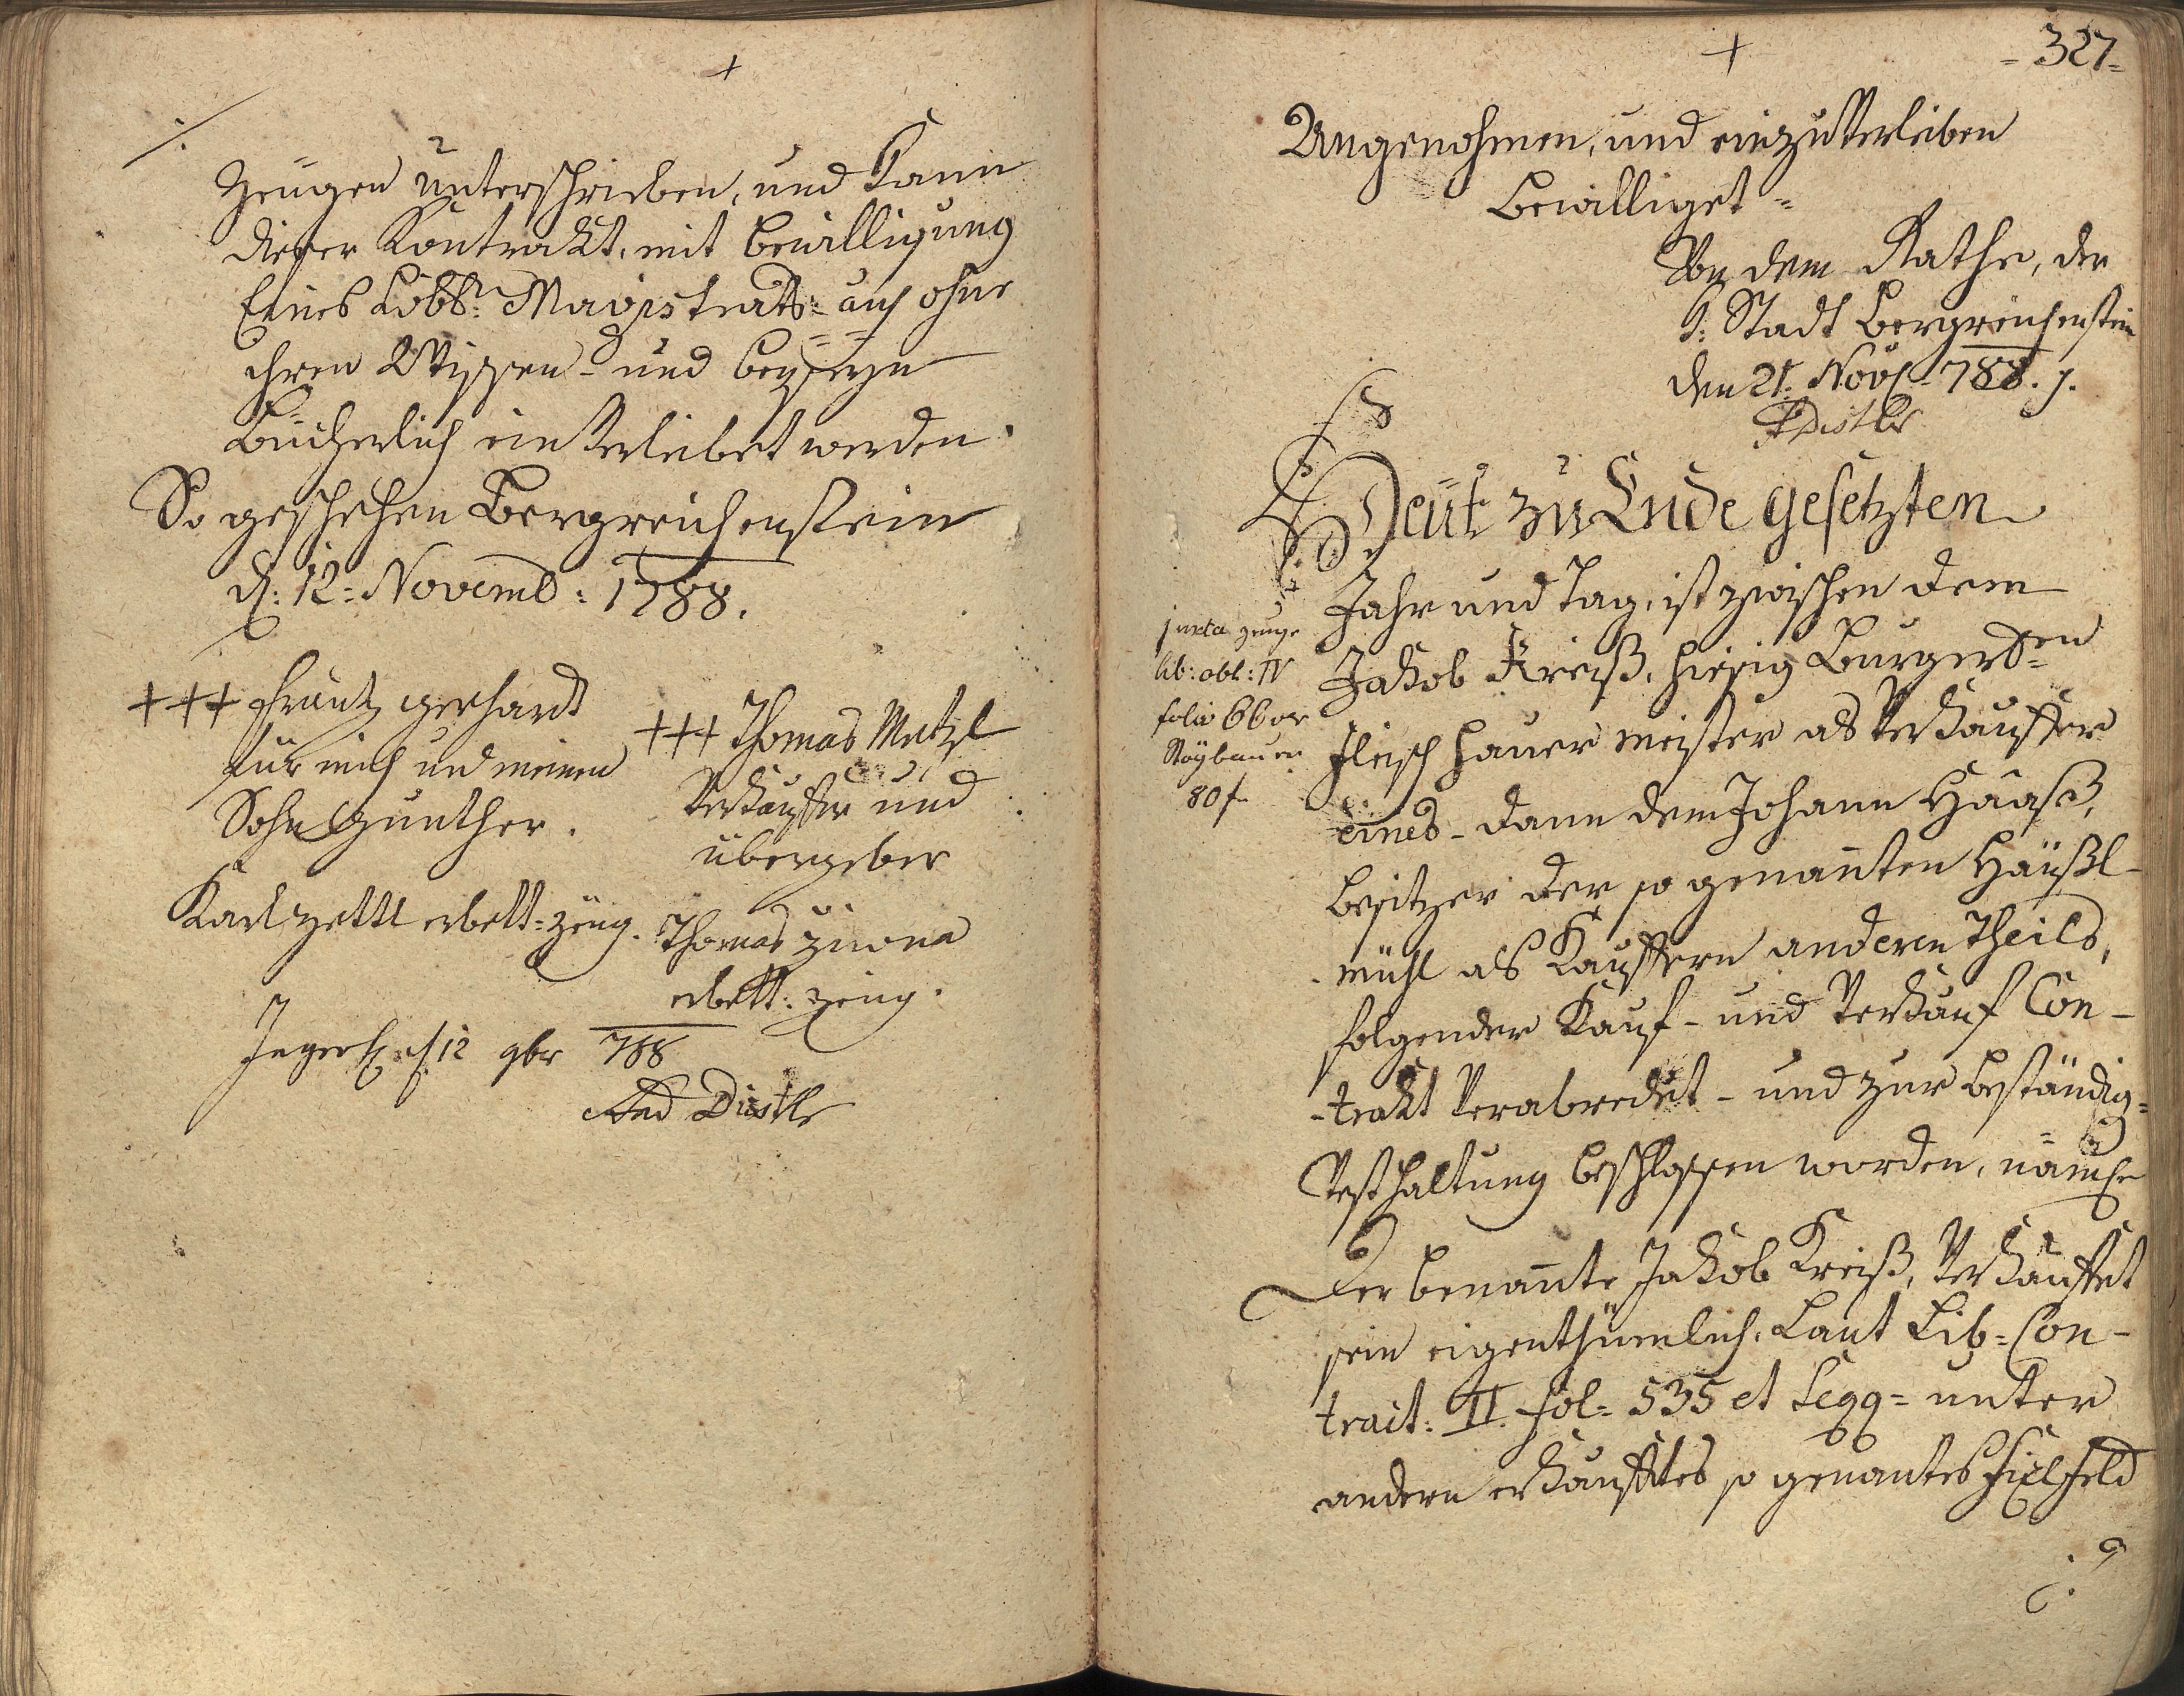 Zeügen unterschrieben, und Kann
dieser Kontrakt, mit bewilligung
Eines Löbl: Magistrats= auch ohne
ihren Wissen= und beyseyn
Bücherlich einVerleibet werden.
So geschehen Bergreichenstein
d: 12= Novemb: 1788.
+++ Frantz gerhardt
für mich und meinen
Sohn Gunther.
Karl zettl erbett=zeüg.
+++ Thomas Metzl
Verkäuffer und
übergeber
Thomas
erbett: zeüg.
12 9br 788
Distler
+
= 327=
+
Angenohmen, und einzuVerleiben
Bewilliget=
Von dem Rathe, der
k: Stadt Bergreichenstein
den 21: Nov 788.
Distler
Heüt zu Ende gesetzten
Jahr und Tag, ist zwischen dem
Jakob Kreiß, hiesig Burgerl=en
Fleischhauer meister als Verkäuffer
eines- dann dem Johann Haaß,
besitzer der so genannten Häußl-
-mühl als Käuffern anderen Theils,
folgender Kauf- und Verkauf Con-
-trakt Verabredet- und zur beständig=
Vesthaltung beschlossen worden, näml
Der benannte Jakob Kreiß, Verkauffet
sein eigenthümlich, Laut Lib= Con-
tract: II. fol= 535 et Seqq= unter
andern erkaufftes so genantes feld
juxta
lib: obl: IV
folio 66
80 f